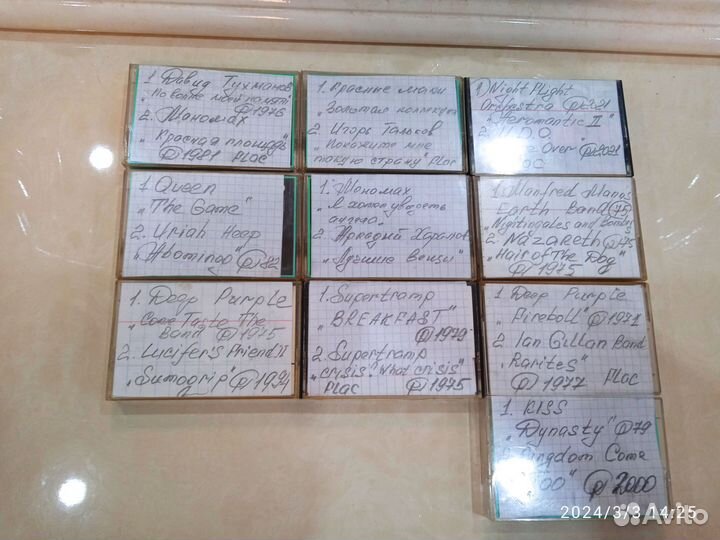 1. Давид Тухманов
„По волне моей памяти"
℗1976
2. Мономах
„Красная площадь"
℗1981 FLAC
1. Красные маки
„Золотая коллекция
2. Игорь Тальков
„Покажите мне
такую страну" FLAC
1. Night Flight
Orchestra ℗2021
"Aeromantic II"
2. U.D.O.
Over" ℗2021
1. Queen
„The Game"
2. Uriah Heep
„Abominog" ℗82
1. Мономах
„Я хотел увидеть
ангела"
2. Аркадий Хоралов
„Лучшие Вещи"
1. Manfred Manns
Earth Band ℗75
„Nightingales and Bombers
2. Nazareth ℗75
„Hair of The Dog"
℗1975
1. Deep Purple
„Come Taste The
Band" ℗1975
2. Lucifer's Friend II
„Sumogrip" ℗1994
1. Supertramp
„BREAKFAST"
℗1979
2. Supertramp
„Crisis? What crisis"
FLAC ℗1975
1. Deep Purple
„Fireball" ℗1971
2. Ian Gillan Band
„Rarites"
℗1977 FLAC
1. KISS
„Dynasty" ℗79
Kingdom Come
TOO" ℗2000
2024/3/3 14:25
Avito